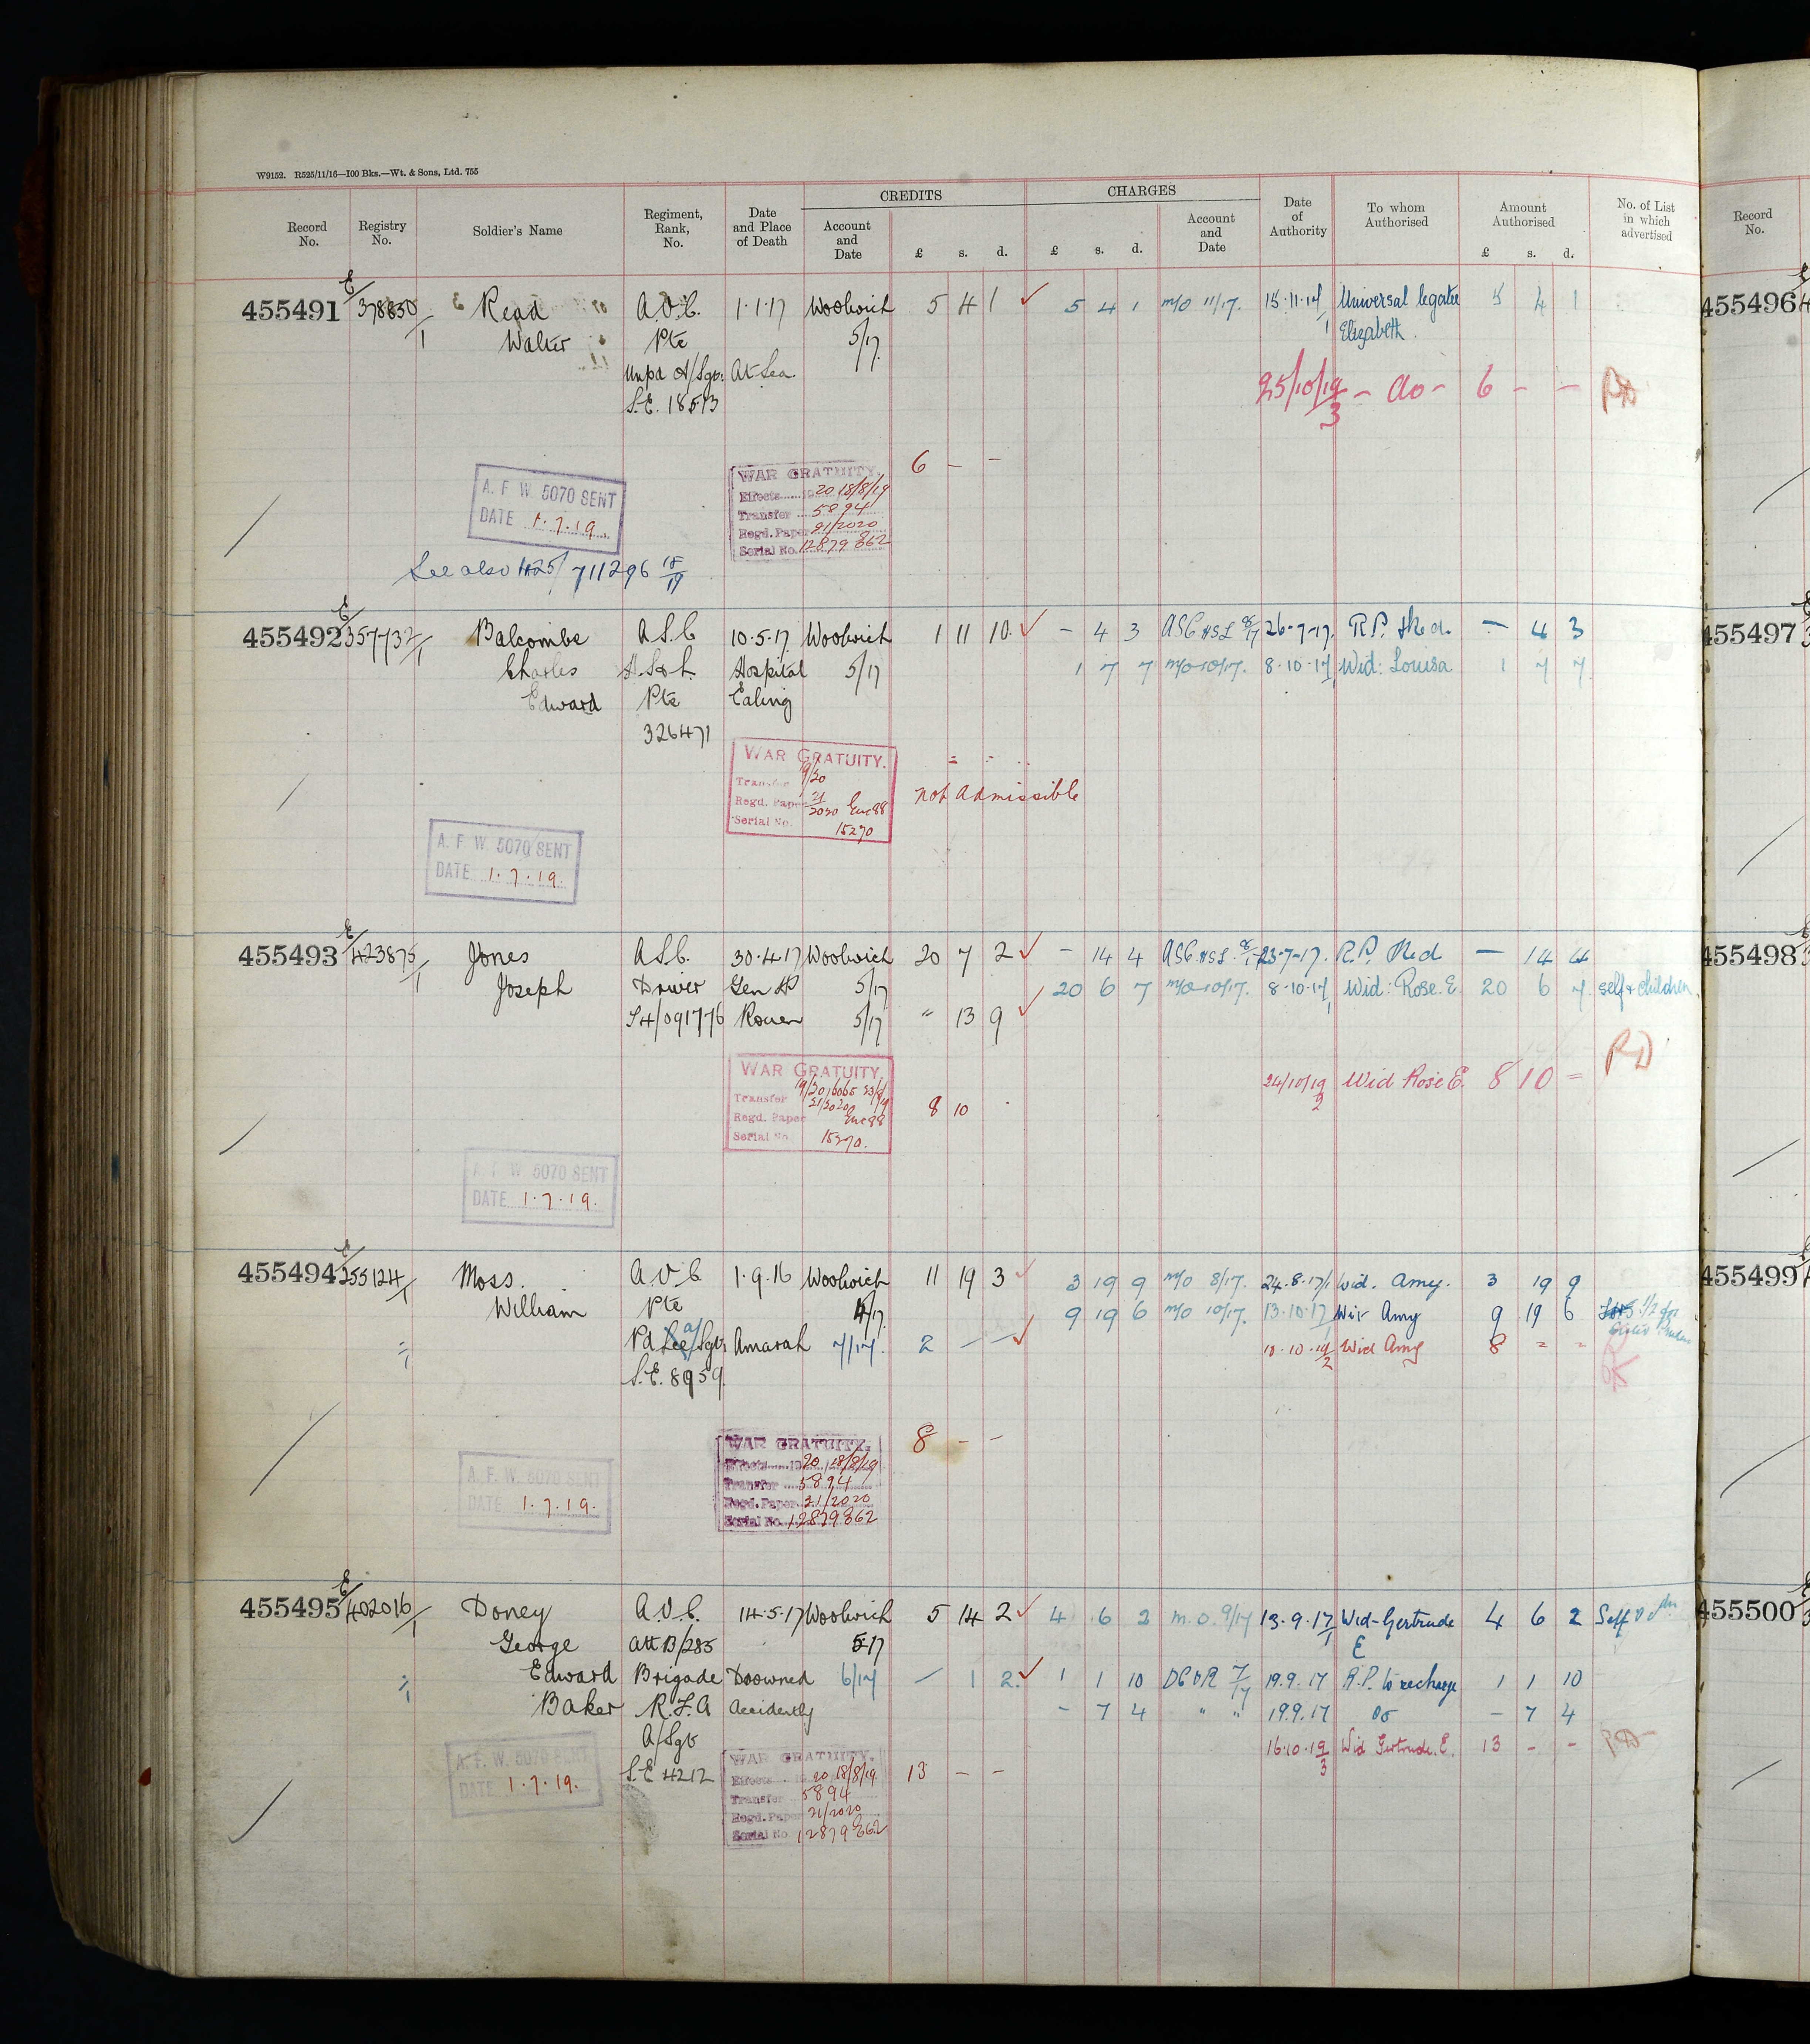 W9152. R525/11/16—100 Bks.—Wt. & Sons, Ltd. 755
CREDITS CHARGES
Record No. Registry No. Soldier's Name Regiment, Rank, No. Date and Place of Death Account and Date £ s. d. £ s. d. Account and Date Date of Authority To whom Authorised Amount Authorised £ s. d. No. of List in which advertised Record No.
455491 E/378850/1 Read A.V.C. 1.1.17 Woolwich 5 4 1 5 4 1 m/o 11/17. 15.11.17/1 Universal legatee 5 4 1 455496
Walter Pte 5/17 Elizabeth.
Unpd A/Sgt: At Sea.
S.E. 18513 25/10/19/3 - do - 6 - -
WAR GRATUITY. 6 - -
A. F. W. 5070 SENT Effects 20 18/8/19
DATE 1.7.19. Transfer 5894
Regd. Paper 21/2020
Serial No. 12879 862
See also 711296
455492 E/357732/1 Balcombe A.S.C 10.5.17 Woolwich 1 11 10 - 4 3 ASC 26-7-17. R.P. 4 3 455497
Charles Hospital 5/17 1 7 7 m/o 10/17. 8.10.17 Wid: Louisa 1 7 7
Edward Pte Ealing
326471
WAR GRATUITY.
Transfer 19/20
Regd. Paper 21/2020 Enc 88 not admissible
Serial No. 15270
A. F. W. 5070 SENT
DATE 1.7.19.
455493 E/423875/1 Jones A.S.C. 30.4.17 Woolwich 20 7 2 - 14 4 ASC 23-7-17. R.P. - 14 4 455498
Joseph Driver Gen H 5/17 20 6 7 m/o 10/17. 8.10.17 Wid: Rose. E. 20 6 7 self & children.
T4/091776 Rouen 5/17 " 13 9
WAR GRATUITY. 24/10/19/2 Wid Rose E. 8 10 =
Transfer 8 10
Regd. Paper 21/2020 Enc 88
Serial No. 15270.
A. F. W. 5070 SENT
DATE 1.7.19.
455494 E/255124/1 Moss. A.V.C 1.9.16 Woolwich 11 19 3 3 19 9 m/o 8/17. 24.8.17/1 Wid. Amy. 3 19 9 455499
William Pte 4/17 9 19 6 m/o 10/17. 13.10.17 Wid Amy 9 19 6
Pd a/Sgt: Amarah 7/17. 2 - - 10.19/2 Wid Amy 8 = =
S.E. 8959.
WAR GRATUITY. 8 - -
A. F. W. 5070 SENT Effects 20 18/8/19
DATE 1.7.19. Transfer 5894
Regd. Paper 21/2020
Serial No. 12879 862
455495 E/402016/1 Doney A.V.C. 14.5.17 Woolwich 5 14 2 4 6 2 m.o. 9/17 13.9.17/1 Wid-Gertrude 4 6 2 Self 455500
George att B/285 5.17 E
Edward Brigade Drowned 6/17 - 1 2. 1 1 10 7/17 19.9.17 R.P. to recharge 1 1 10
Baker R.F.A Accidently - 7 4 " " 19.9.17 do - 7 4
A/Sgt 16.10.19/3 Wid Gertrude. E. 13 - -
S.E 4212
WAR GRATUITY. 13 - -
A. F. W. 5070 SENT Effects 20 18/8/19
DATE 1.7.19. Transfer 5894
Regd. Paper 21/2020
Serial No 12879 862